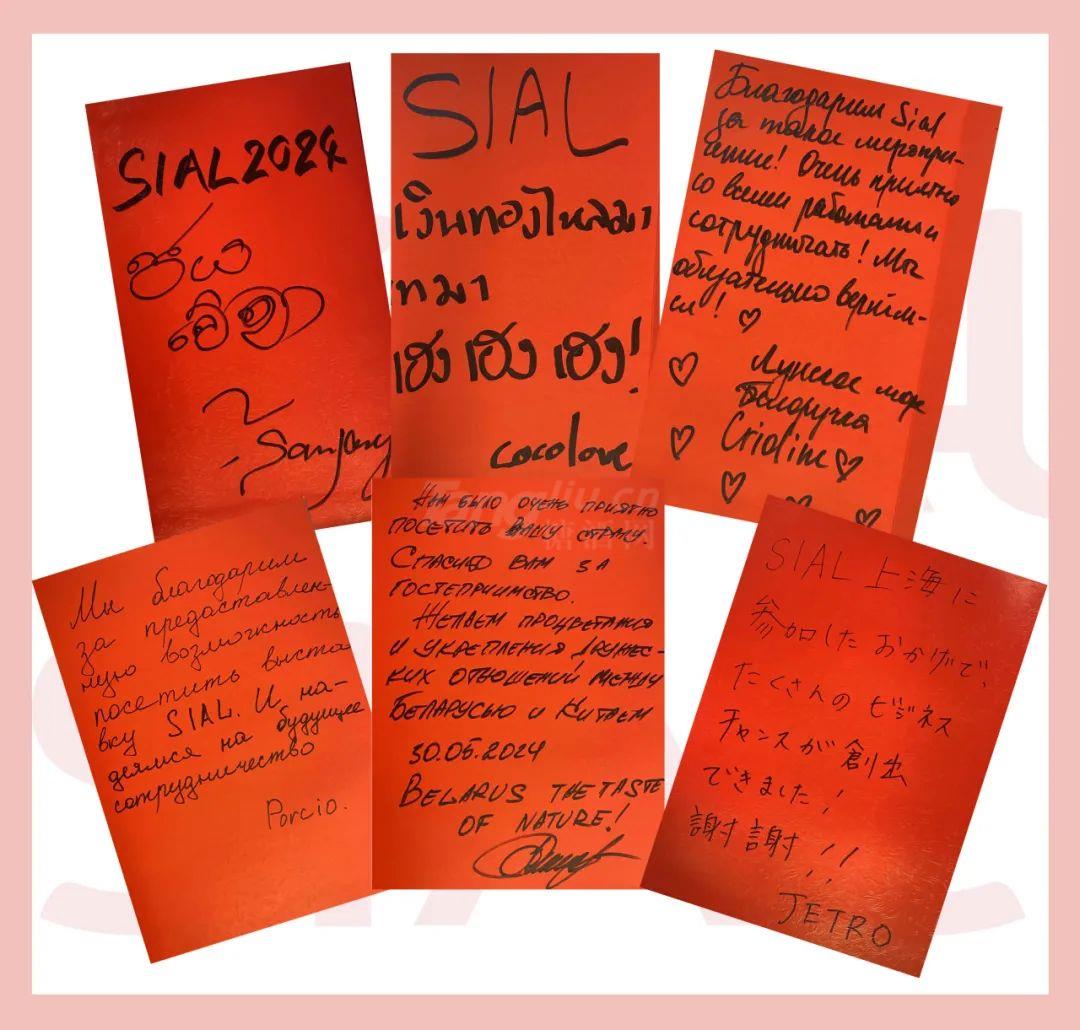 SIAL2024
ජය
වේවා
SIAL
เงินทองไหลมา
ทมา
เฮง เฮง เฮง!
cocolove
Благодарим Sial
за такое меропри-
ятие! Очень приятно
со всеми работать и
сотрудничать! Мы
обязательно вернём-
ся! ♡
море
Белоручка
Мы благодарим
за предоставлен-
ную возможность
посетить выста
вку SIAL. И на-
деямся на будущее
сотрудничество
Porcio.
Нам было очень приятно
посетить Вашу страну.
Спасибо вам за
гостеприимство.
Желаем процветания
и укрепления дружес-
ких отношений между
Беларусью и Китаем
30.05.2024
BELARUS THE TASTE
OF NATURE!
SIAL 上海に
参加したおかげで、
たくさんのビジネス
チャンスが創出
できました!
謝謝!!
JETRO